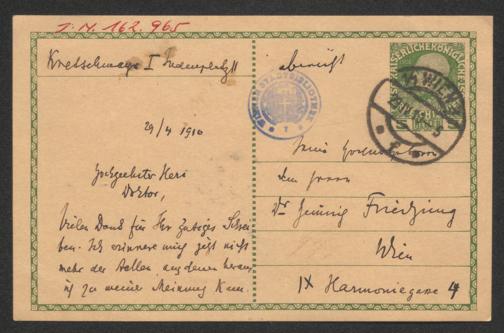 I. N. 162.965
Kretschmayr I Judenplatz 11
29/4 1910
Hochgeehrter Herr
Doktor,
Vielen Dank für Ihr gütiges Schrei-
ben. Ich erinnere mich jetzt nicht
mehr der Stellen, aus denen heraus
ich zu meiner Meinung kam.
WIENER STADTBIBLIOTHEK
1/1 WIEN
Seine Hochwohlgeboren
den Herrn
Dr Heinrich Friedjung
Wien
IX Harmoniegasse 4